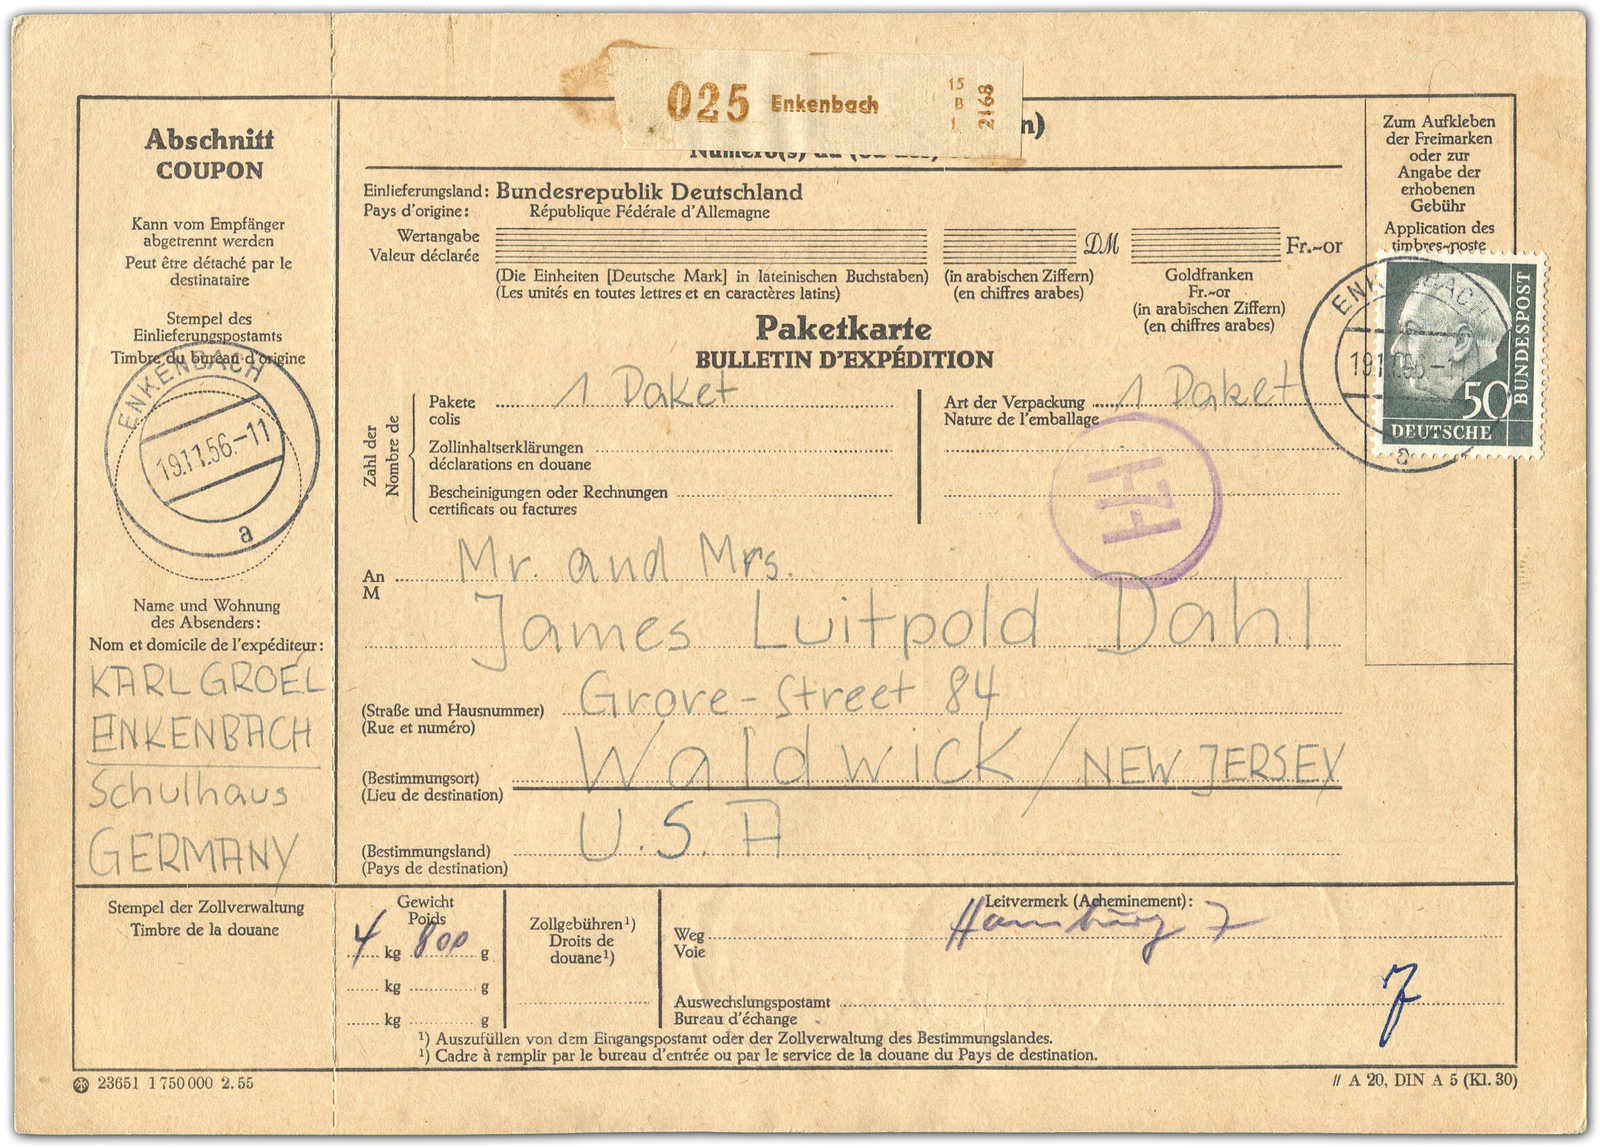 025 Enkenbach 15 B 1 2168
n)
Abschnitt
COUPON
Kann vom Empfänger
abgetrennt werden
Peut être détaché par le
destinataire
Stempel des
Einlieferungspostamts
Timbre du bureau d'origine
ENKENBACH
19.11.56.-11
a
Name und Wohnung
des Absenders:
Nom et domicile de l'expéditeur:
KARL GROEL
ENKENBACH
Schulhaus
GERMANY
Einlieferungsland: Bundesrepublik Deutschland
Pays d'origine: République Fédérale d'Allemagne
Wertangabe
Valeur déclarée
DM
Fr.-or
(Die Einheiten [Deutsche Mark] in lateinischen Buchstaben)
(Les unités en toutes lettres et en caractères latins)
(in arabischen Ziffern)
(en chiffres arabes)
Goldfranken
Fr.-or
(in arabischen Ziffern)
(en chiffres arabes)
Paketkarte
BULLETIN D'EXPÉDITION
Zahl der
Nombre de
Pakete 1 Paket
colis
Zollinhaltserklärungen
déclarations en douane
Bescheinigungen oder Rechnungen
certificats ou factures
Art der Verpackung 1 Paket
Nature de l'emballage
HZ
An Mr. and Mrs.
M
James Luitpold Dahl
(Straße und Hausnummer) Grove-Street 84
(Rue et numéro)
(Bestimmungsort) Waldwick / NEW JERSEY
(Lieu de destination)
(Bestimmungsland) U.S.A
(Pays de destination)
Zum Aufkleben
der Freimarken
oder zur
Angabe der
erhobenen
Gebühr
Application des
timbres-poste
ENKENBACH
a
50
DEUTSCHE
BUNDESPOST
Stempel der Zollverwaltung
Timbre de la douane
Gewicht
Poids
4 kg 800 g
kg g
kg g
Zollgebühren¹)
Droits de
douane¹)
Leitvermerk (Acheminement):
Weg Hamburg 7
Voie
7
Auswechslungspostamt
Bureau d'échange
¹) Auszufüllen von dem Eingangspostamt oder der Zollverwaltung des Bestimmungslandes.
¹) Cadre à remplir par le bureau d'entrée ou par le service de la douane du Pays de destination.
23651 1 750 000 2. 55
// A 20, DIN A 5 (Kl. 30)